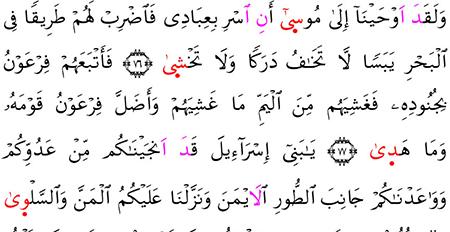 وَلَقَدَ اَوْحَيْنَآ إِلَىٰ مُوسِىٰٓ أَنِ اَسْرِ بِعِبَادِى فَٱضْرِبْ لَهُمْ طَرِيقًا فِى
ٱلْبَحْرِ يَبَسًا لَّا تَخَٰفُ دَرَكًا وَلَا تَخْشِىٰ ٧٦ فَأَتْبَعَهُمْ فِرْعَوْنُ
بِجُنُودِهِۦ فَغَشِيَهُم مِّنَ ٱلْيَمِّ مَا غَشِيَهُمْ وَأَضَلَّ فِرْعَوْنُ قَوْمَهُۥ
وَمَا هَدِىٰ ٧٧ يَٰبَنِىٓ إِسْرَآءِيلَ قَدَ اَنجَيْنَٰكُم مِّنْ عَدُوِّكُمْ
وَوَٰعَدْنَٰكُمْ جَانِبَ ٱلطُّورِ ٱلَايْمَنَ وَنَزَّلْنَا عَلَيْكُمُ ٱلْمَنَّ وَٱلسَّلْوِىٰ